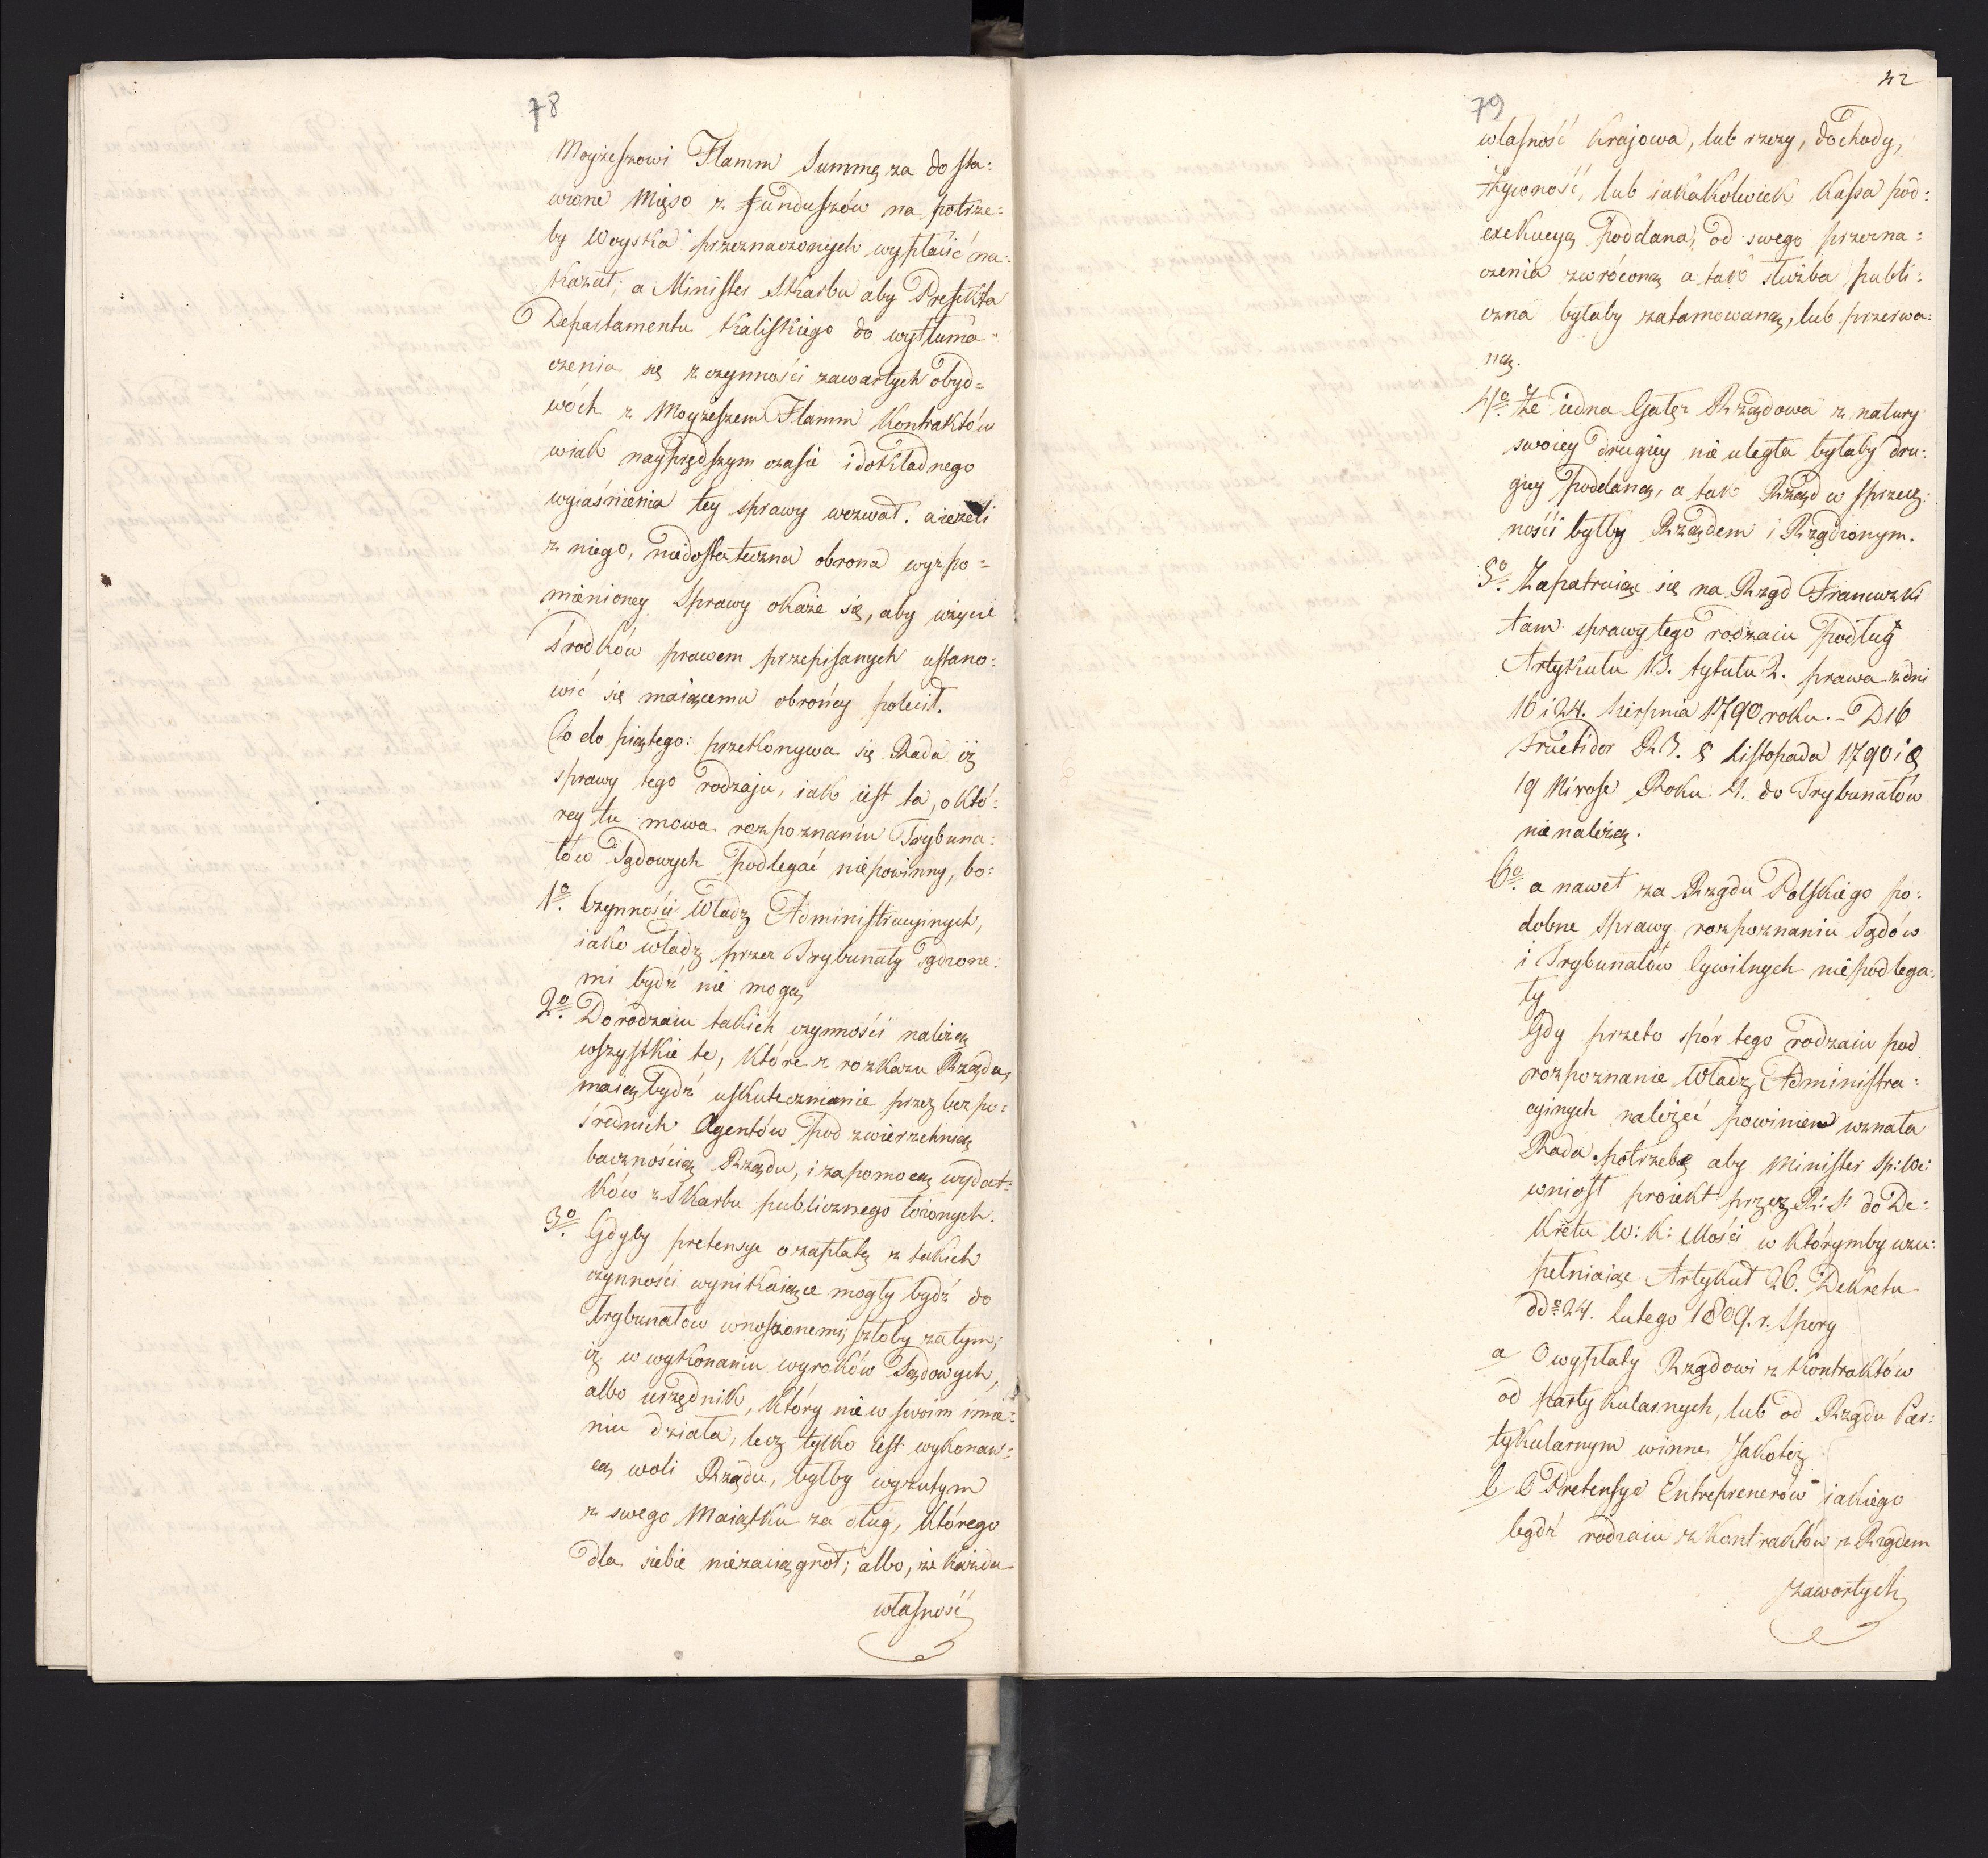 78
Moyżeszowi Flamm Summę za dosta:
wione Mięso z funduszów na potrze:
by Woyska przeznaczonych wypłacić na:
kazał; a Minister Skarbu aby Prefekta
Departamentu Kaliskiego do wytłuma:
czenia się z czynności zawartych obyd=
wóch z Moyżeszem Flamm Kontraktów
w iak nayprędszym czasie i dokładnego
wyiaśnienia tey sprawy wezwał. a ieżeli
z niego, niedostateczna obrona wyż po=
mienioney Sprawy okaże się, aby użycie
środków prawem przepisanych ustano:
wić się maiącemu obrońcy polecił.
Co do piątego: przekonywa się Rada iż
sprawy tego rodzaju, iak iest ta, o któ:
rey tu mowa rozpoznaniu Trybuna:
łów Sądowych podlegać niepowinny, bo:
1º. Czynności Władz Administracyinych,
iako władz przez Trybunały sądzone:
mi bydź nie mogą
2º. Do rodzaiu takich czynności należą
wszystkie te, które z rozkazu Rządu,
maią bydź uskutecznianie przez bezpo:
średnich Agentów pod zwierzchnią
bacznością Rządu, i za pomocą wydat:
ków z Skarbu publicznego łożonych.
3º. Gdyby pretensye o zapłatę z takich
czynności wynikaiące mogły bydź do
Trybunałów wnoszonemi; szłoby zatym;
iż w wykonaniu wyroków Sądowych,
albo urzędnik, który nie w swoim imie:
niu działa, lecz tylko iest wykonaw:
cą woli Rządu, byłby wyzutym
z swego Maiątku za dług, którego
dla siebie niezaciągnoł; albo, że każda
własność
42
79
własność Krajowa, lub rzeczy, dochody,
żywność, lub iakakolwiek Kassa pod:
exekucyą poddana, od swego przezna:
czenia zwróconą a tak służba publi:
czna byłaby zatamowaną, lub przerwa:
ną.
4º. Że iedna Gałęź Rządowa z natury
swoiey drugiey nie uległa byłaby dru:
giey poddaną, a tak Rząd w sprzecz:
ności byłby Rządem i Rządzonym.
5º. Zapatruiąc się na Rząd Francuzki
tam sprawy tego rodzaiu podług
Artykułu 13. tytułu 2. prawa z dni
16 i 24. Sierpnia 1790 roku. - D 16
Fructidor R 3. 8 listopada 1790 i
19 Nivose Roku. 4. do Trybunałów
nie należą.
6º. a nawet za Rządu Polskiego po:
dobne Sprawy rozpoznaniu Sądów
i Trybunałów Cywilnych nie podlega:
ły
Gdy przeto spór tego rodzaiu pod
rozpoznanie Władz Administra:
cyinych należeć powinien uznała
Rada potrzebę aby Minister Sp: We:
wniosł proiekt przez R: S: do De:
kretu W: K: Mości w którymby uzu:
pełniaiąc Artykuł 26. Dekretu
dd º 24. Lutego 1809. r. Spory
a O wypłaty Rządowi z Kontraktów
od partykularnych, lub od Rządu Par:
tykularnym winne Jakoteż
b O Pretensye Entreprenerów iakiego
bądź rodzaiu z kontraktów z Rządem
zawartych